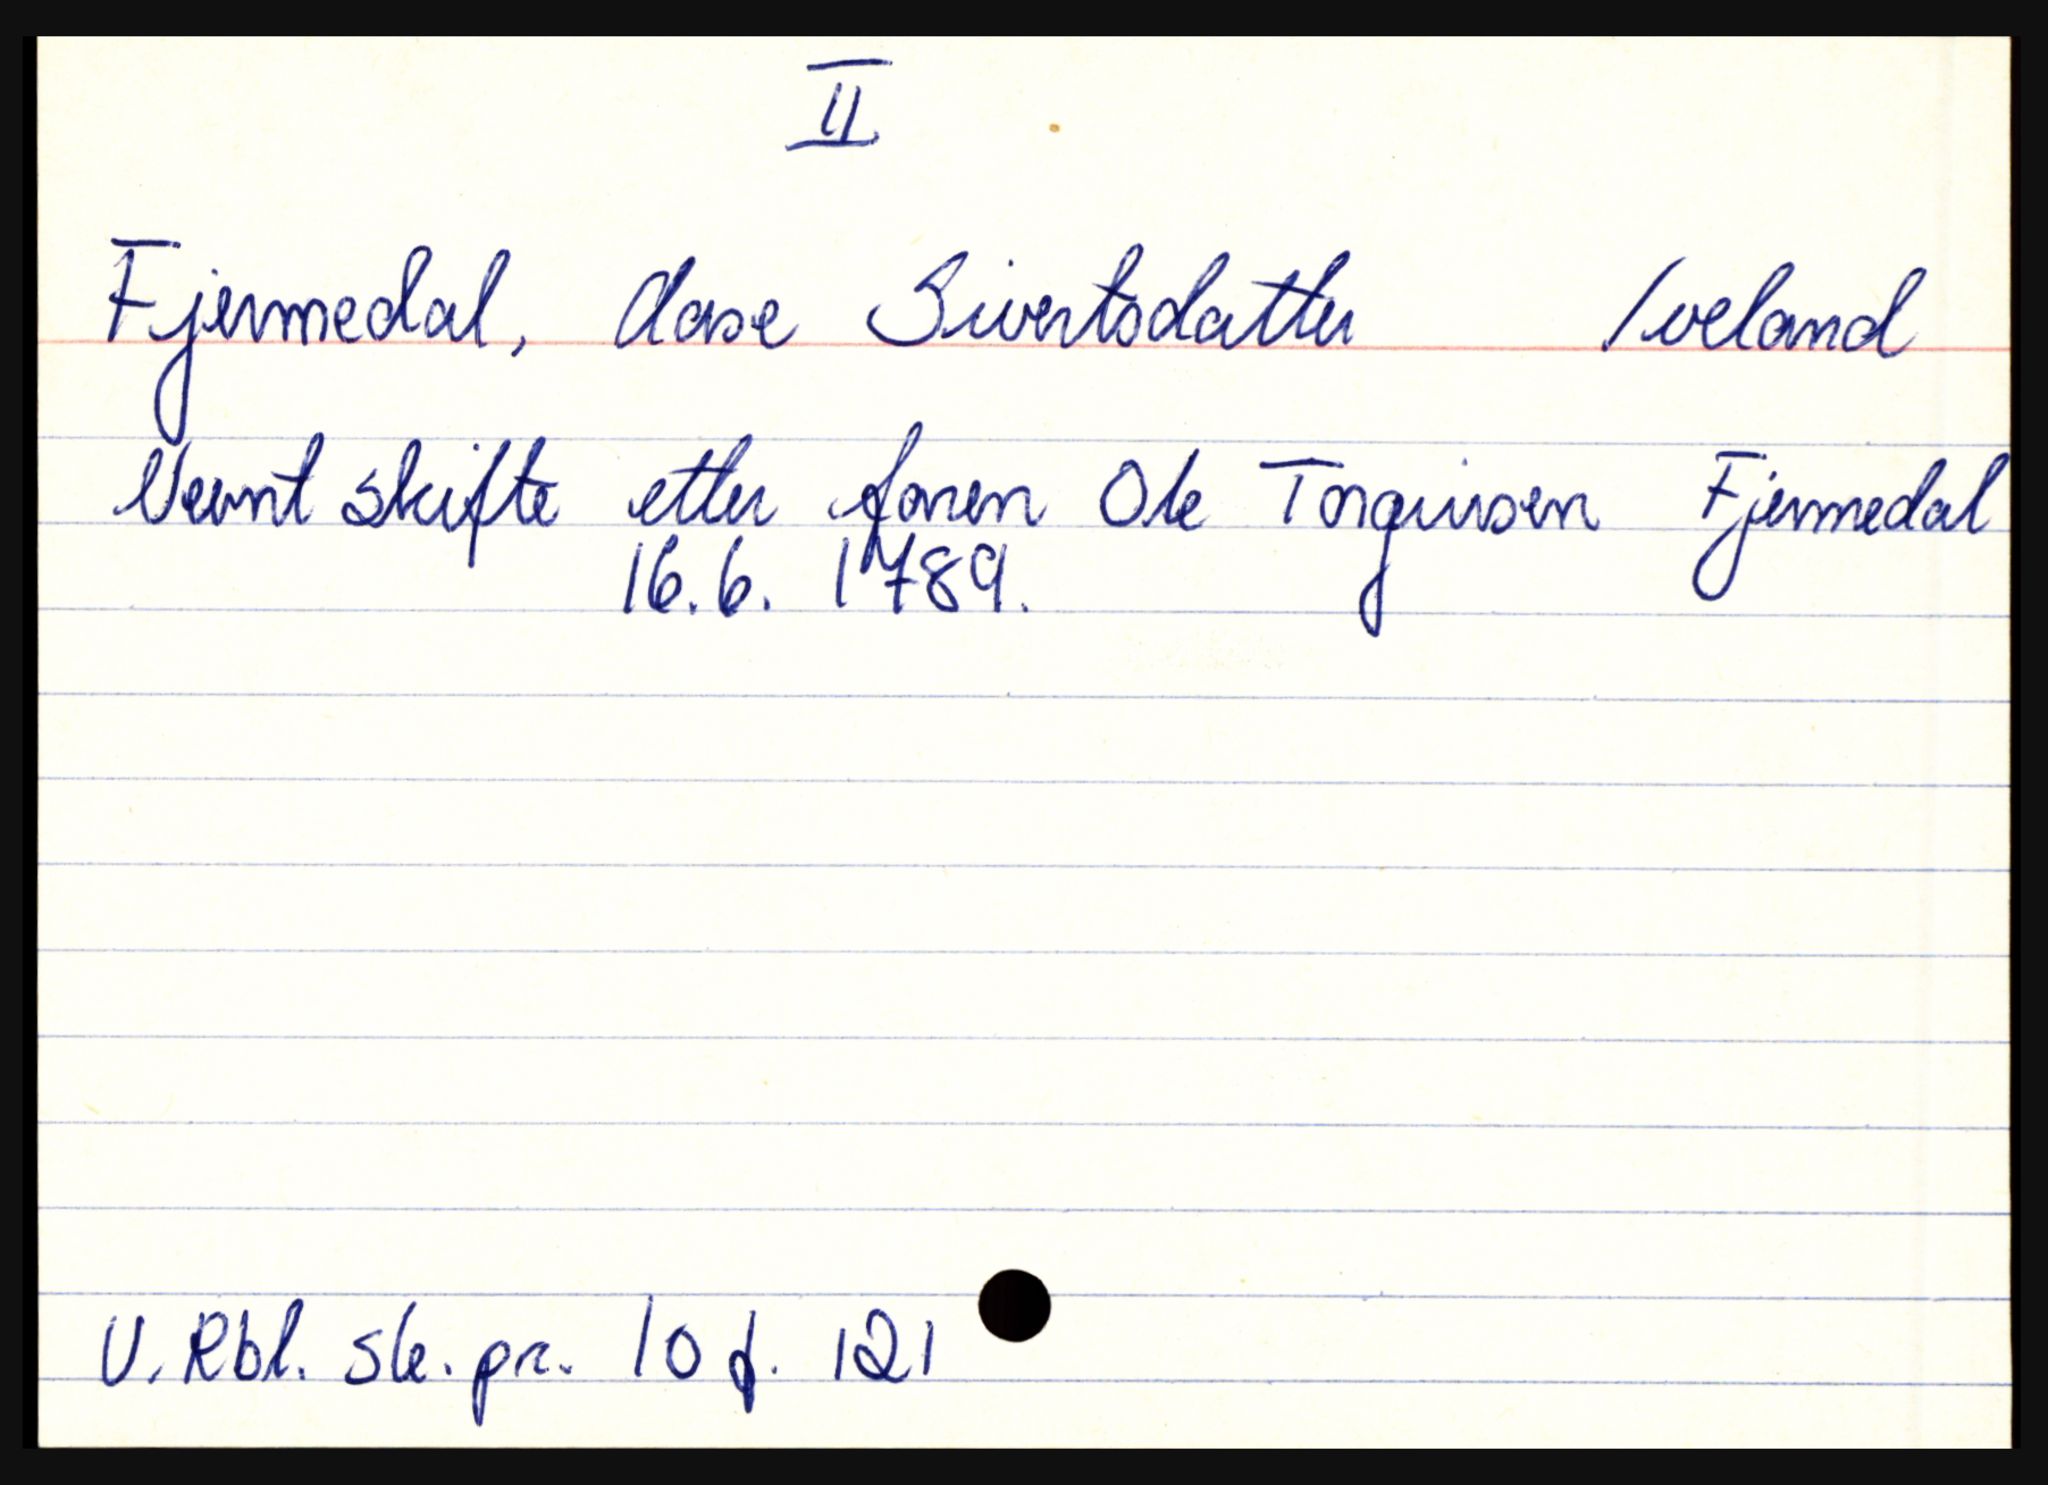 II
Fjermedal, Aase Sivertsdatter Iveland
Nevnt skifte etter faren Ole Torgeirsen Fjermedal
16.6. 1789.
V. Rbl. sk. pr. 10 f. 121